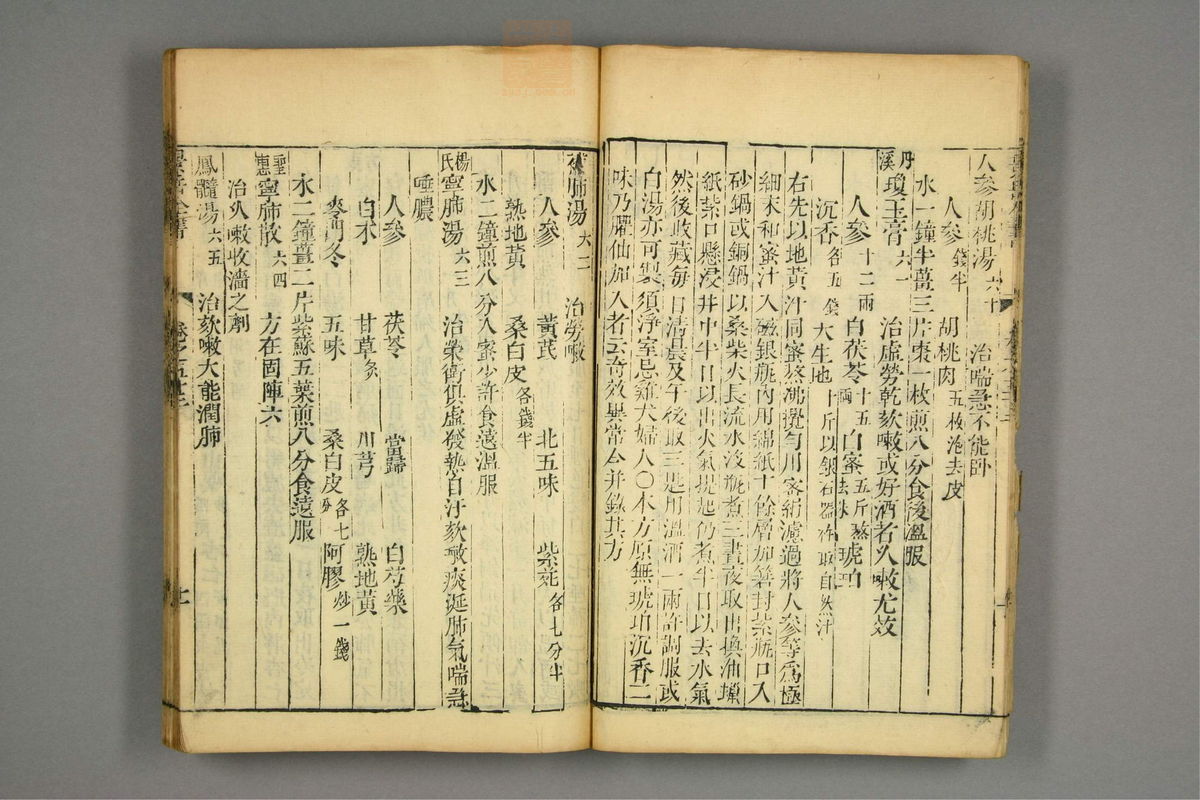 人參胡桃湯六十　治喘急不能卧
人參錢半　胡桃肉五枚泡去皮
水一鐘半薑三片棗一枚煎八分食後溫服
丹溪瓊玉膏六一　治虛勞乾欬嗽或好酒者久嗽尤效
人參十二兩　白茯苓十五兩　白蜜五斤熬去沫　琥珀
沉香各五錢　大生地十斤以銀石器杵取自然汁
右先以地黃汁同蜜熬沸攪勻用密絹濾過將人參等爲極
細末和蜜汁入磁銀瓶內用綿紙十餘層加箬封紮瓶口入
砂鍋或銅鍋以桑柴火長流水沒瓶煮三晝夜取出換油蠟
紙紮口懸浸井中半日以出火氣提起仍煮半日以去水氣
然後收藏每日清晨及午後取三匙用溫酒一兩許調服或
白湯亦可製須淨室忌雞犬婦人〇本方原無琥珀沉香二
味乃臞仙加入者云奇效異常今并錄其方
補肺湯六二　治勞嗽
人參　黃芪　北五味　紫菀各七分半
熟地黃　桑白皮各錢半
水二鐘煎八分入蜜少許食遠溫服
楊氏寧肺湯六三　治榮衛俱虛發熱自汗欬嗽痰涎肺氣喘急
唾膿
人參　茯苓　當歸　白芍藥
白朮　甘草炙　川芎　熟地黃
麥門冬　五味　桑白皮各七分　阿膠炒一錢
水二鐘薑二片紫蘇五葉煎八分食遠服
聖惠寧肺散六四　方在固陣六
治久嗽收濇之劑
鳳髓湯六五　治欬嗽大能潤肺